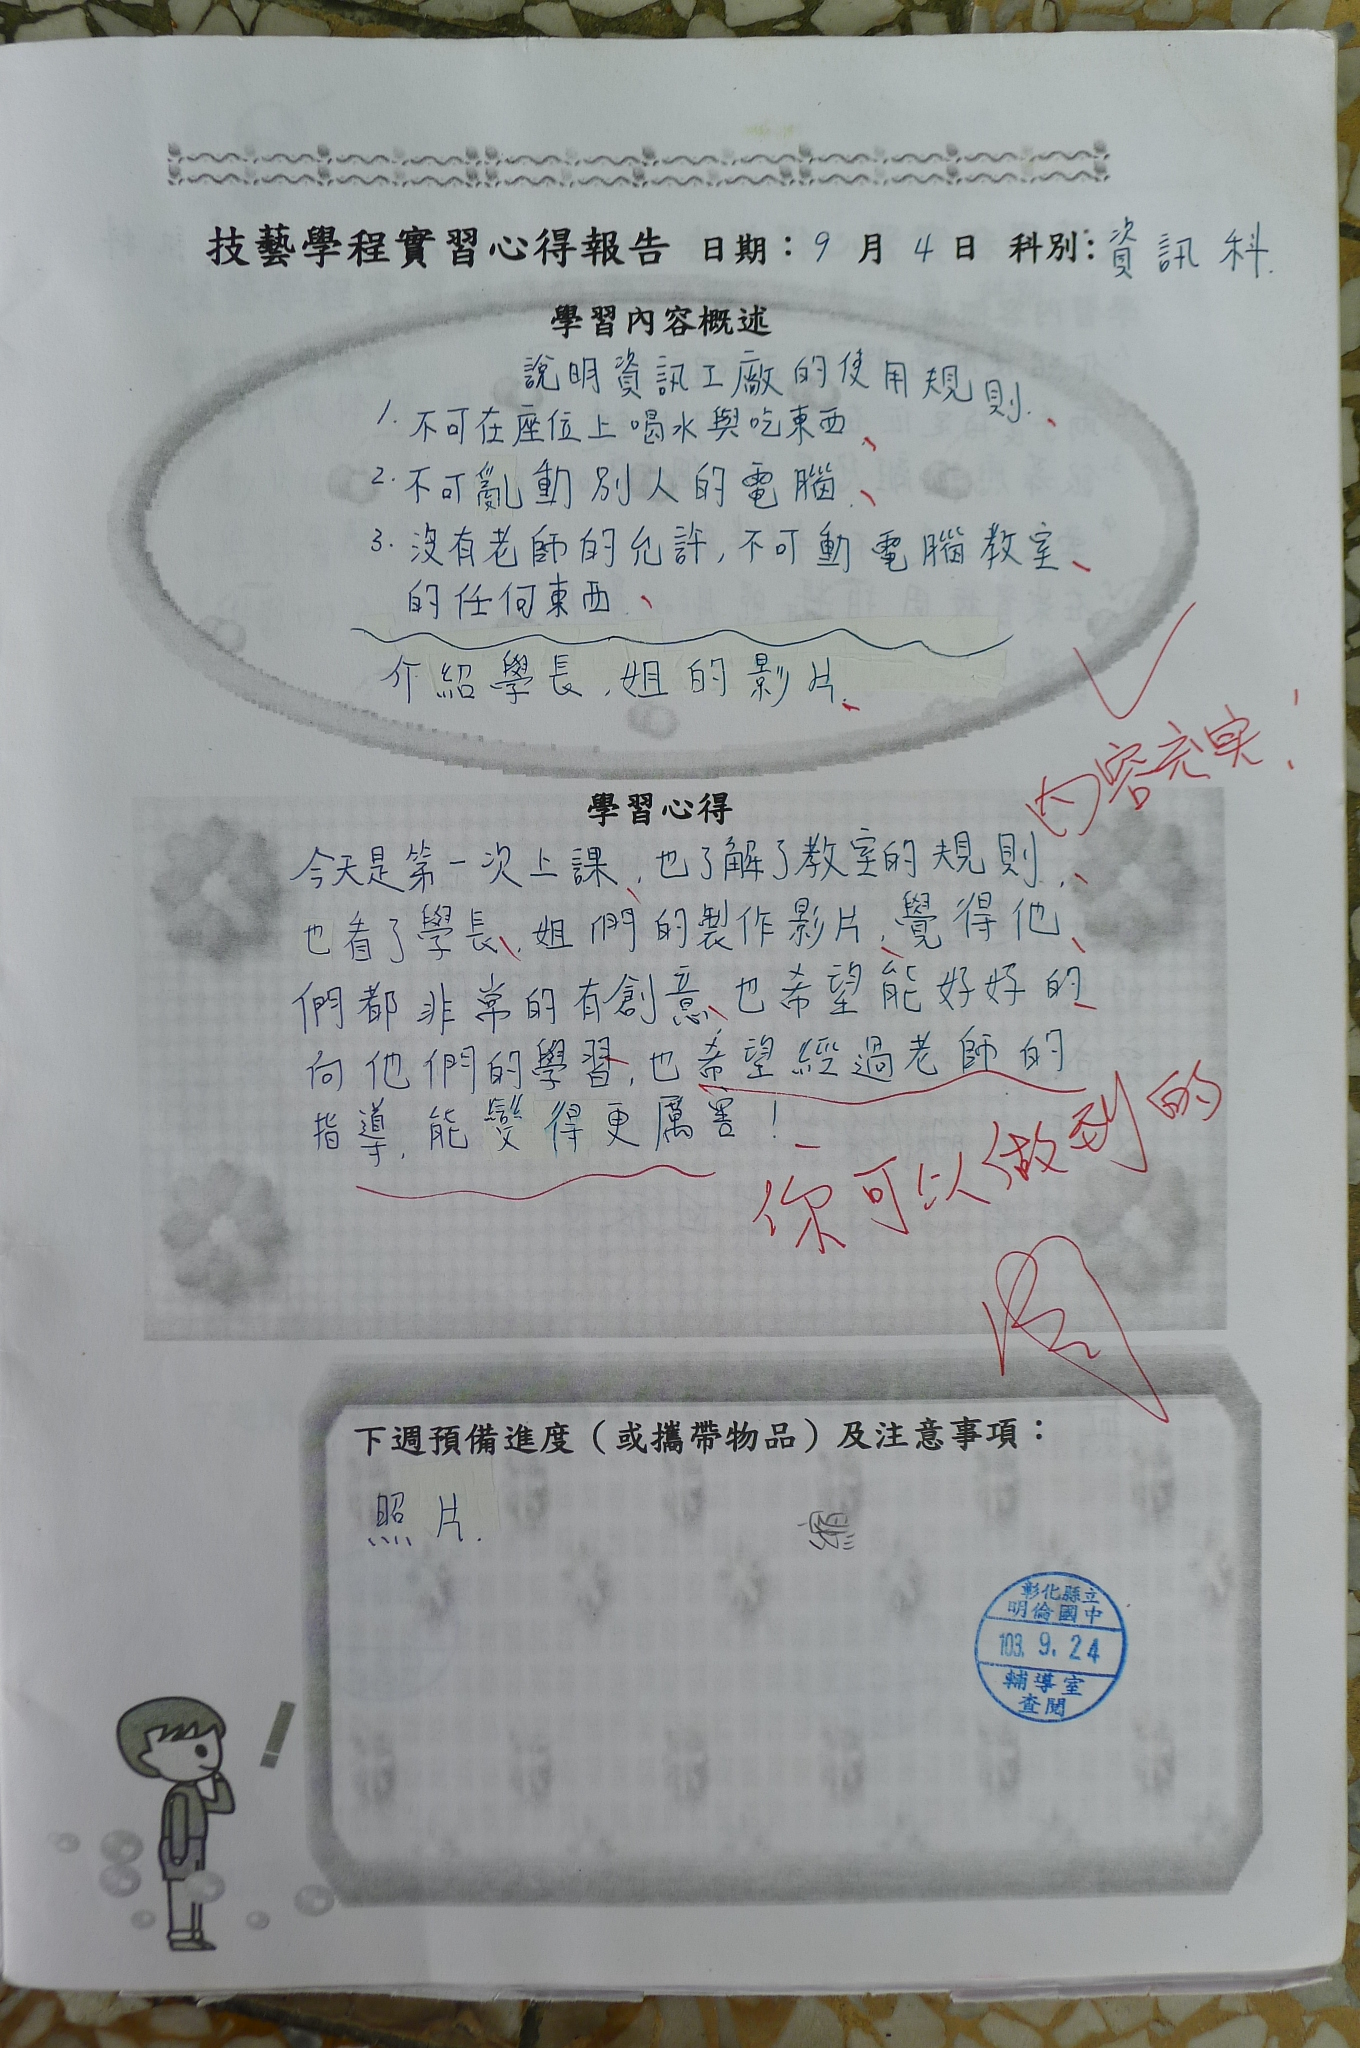 技藝學程實習心得報告 日期：9 月 4 日 科別：資訊科.
學習內容概述
說明資訊工廠的使用規則.
1. 不可在座位上喝水與吃東西.
2. 不可亂動別人的電腦.
3. 沒有老師的允許,不可動電腦教室
的任何東西.
介紹學長,姐的影片.
內容充実!
學習心得
今天是第一次上課,也了解了教室的規則,
也看了學長,姐們的製作影片,覺得他
們都非常的有創意,也希望能好好的
向他們的學習,也希望經過老師的
指導,能變得更厲害!
你可以做到的
下週預備進度（或攜帶物品）及注意事項：
照片.
彰化縣立
明倫國中
103. 9. 24
輔導室
查閱
!